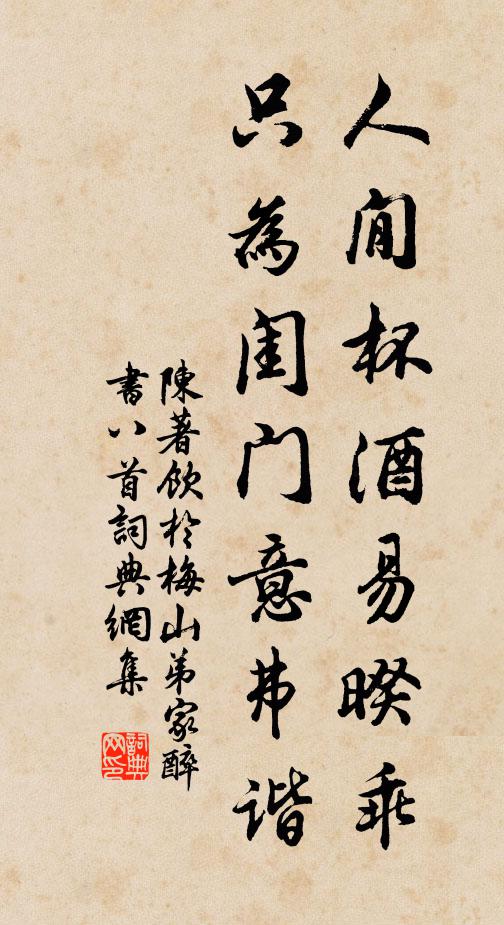 人閒杯酒易暌乖
只為閨門意弗谐
陳著飲於梅山弟家醉
書八首詞典網集
詞典网印